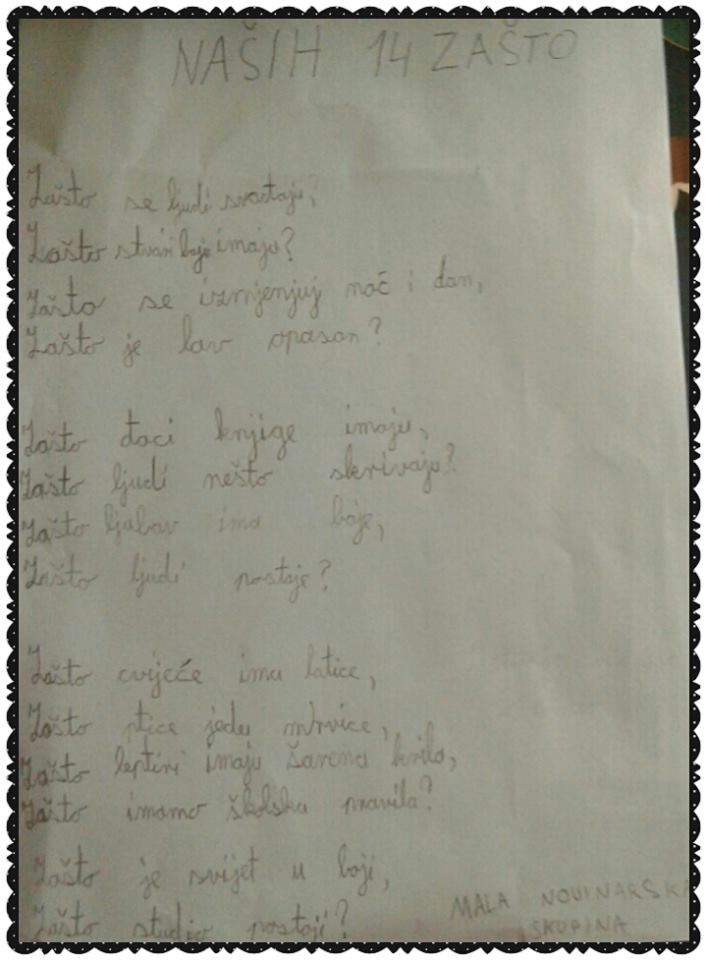 NAŠIH 14 ZAŠTO
Zašto se ljudi svađaju,
Zašto stvari boje imaju?
Zašto se izmjenjuj noć i dan,
Zašto je lav opasan?
Zašto đaci knjige imaju,
Zašto ljudi nešto skrivaju?
Zašto ljubav ima boje,
Zašto ljudi postoje?
Zašto cvijeće ima latice,
Zašto ptice jedu mrvice,
Zašto leptiri imaju šarena krila,
Zašto imamo školska pravila?
Zašto je svijet u boji,
Zašto studio postoji?
MALA NOVINARSKA
SKUPINA